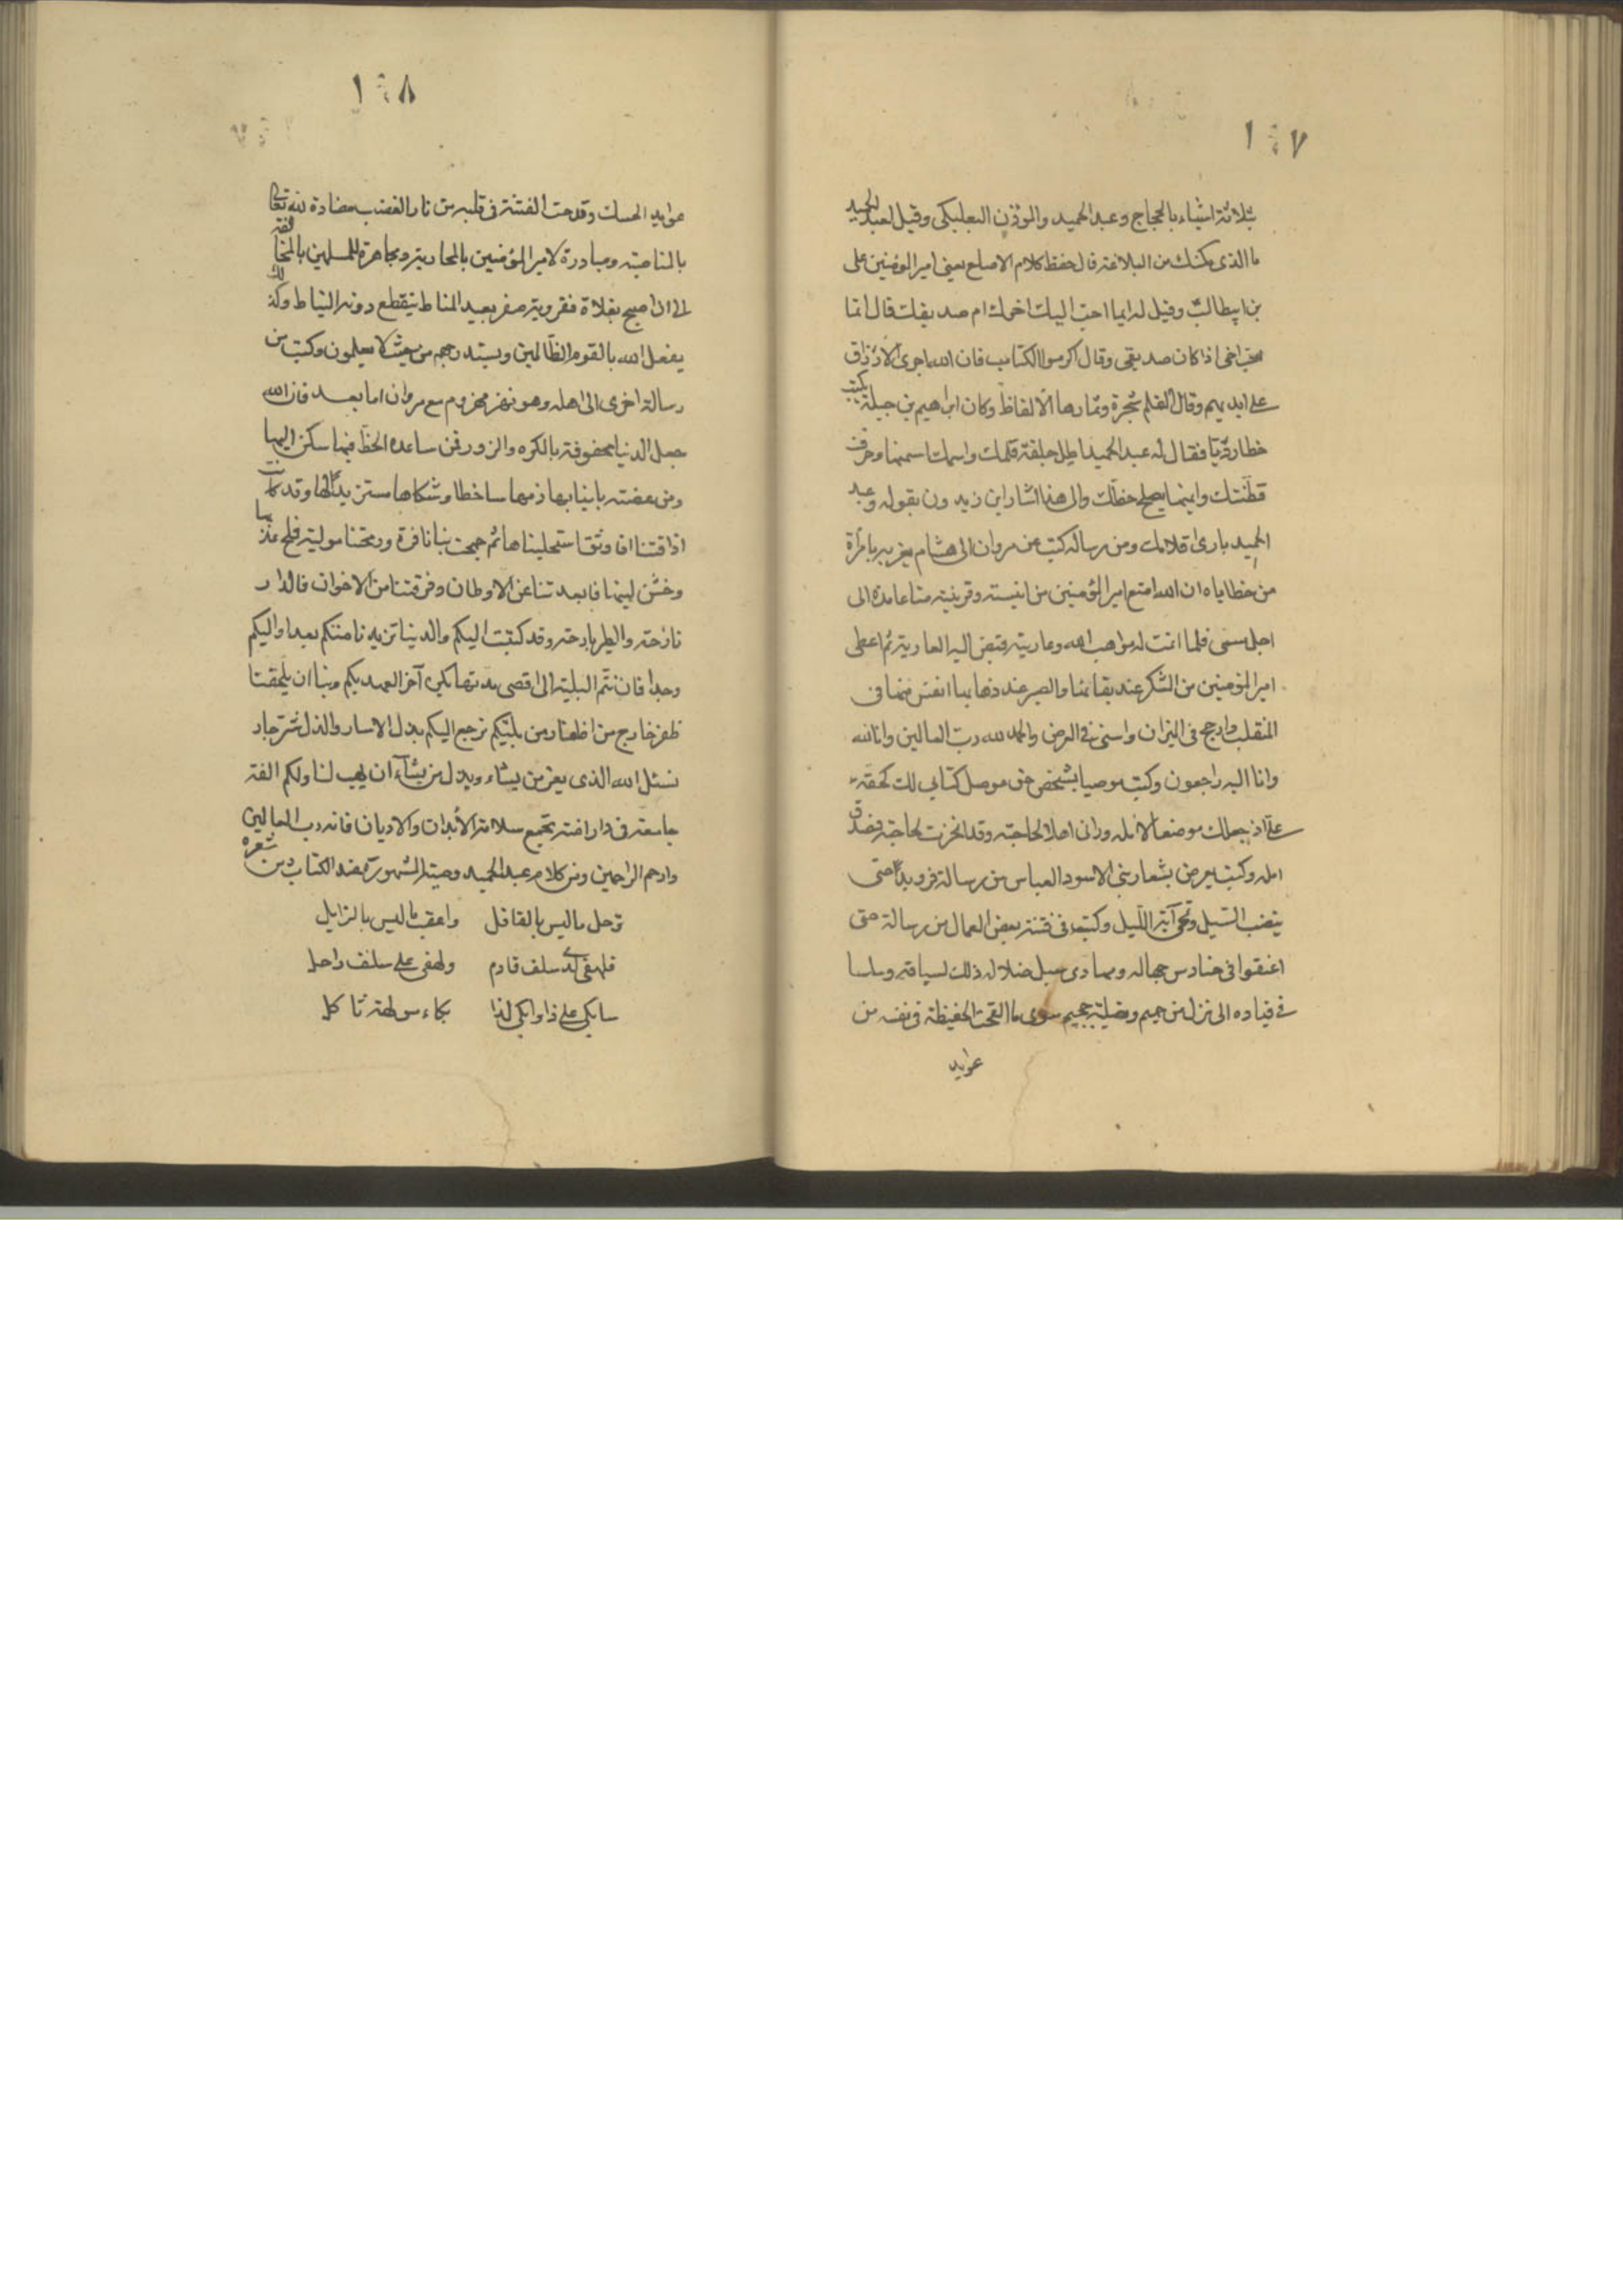 ١٤٧
بثلاثة اشياء بالحجاج وعبد الحميد والموذن البعلبكى وقيل لعبد الحميد
ما الذى مكنك من البلاغة قال حفظ كلام الاصلع يعنى امير المومنين على
بن ابيطالب وقيل له ايما احب اليك اخوك ام صديقك قال انما
احب اخى اذا كان صديقى وقال اكرموا الكتاب فان الله اجرى الارزاق
على ايديهم وقال القلم شجرة وثمارها الالفاظ وكان ابراهيم بن جبلة يكتب
خطا رديا فقال له عبد الحميد اطل جلفة قلمك واسمك اسمنها وحرف
قطتك وايمنها يصلح خطك والى هذا اشار ابن زيدون بقوله وعبد
الحميد بارى اقلامك ومن رسالة كتب عن مروان الى هشام يعزيه بامرأة
من حظاياه ان الله امتع امير المؤمنين من انيسته وقرينته متاعا مده الى
اجل مسمى فلما اتمت له مواهب الله وعاريته قبض اليه العارية ثم اعطى
امير المؤمنين من الشكر عند بقائها والصبر عند ذهابها انفس منها فى
المنقلب وارجح فى الميزان واسنى فى العرض والحمد لله رب العالمين وانا لله
وانا اليه راجعون وكتب موصيا بشخص حق موصل كتابى لك كحقه
على اذ جعلك موضعا لامله ورانى اهلا لحاجته وقد انجزت حاجته فصدق
امله وكتب يعرض بشعار بنى الاسود العباس من رسالة فرويدا حتى
ينضب السيل وتمحى آية الليل وكتب فى فتنة بعض العمال من رسالة حتى
اعنقوا فى حنادس جهاله ومهاوى سبل ضلاله ذلك لسياقه وسلسا
فى قياده الى نزل من حميم وتصلية جحيم سوى ما القحت الحفيظة فى نفسه من
عوايد
١٤٨
عوايد الحسك وقدحت الفتنة فى قلبه من نار الغضب مضادة لله تعالى
بالمناصبة ومبادرة لامير المؤمنين بالمحاربة ومجاهرة للمسلمين بالمخالفة
الى ان اصبح بفلاة قفر وبية صفر بعيد المناط ينقطع دونه النياط وكذلك
يفعل الله بالقوم الظالمين ويستدرجهم من حيث لا يعلمون وكتب من
رسالة اخرى الى اهله وهو منهزم مع مروان اما بعد فان الله
جعل الدنيا محفوفة بالكره والزور فمن ساعده الحظ فيها سكن اليها
ومن عضته بانيابها ذمها ساخطا وشكاها مستزيدا لها وقد كانت
اذاقتنا افاويق استحليناها ثم جمحت بنا نافرة ورمحتنا مولية فملح عذبها
وخشن لينها فابعدتنا عن الاوطان وفرقتنا من الاخوان فالدار
نازحة والطير بارحة وقد كتبت اليكم والدنيا تزيدنا منكم بعدا واليكم
وجدا فان تتم البلية الى اقصى مدتها يكن آخر العهد بكم وبنا ان يلحقنا
ظفر جارح من اظفار من يليكم نرجع اليكم بذل الاسار والذل شر جار
نسئل الله الذى يعز من يشاء ويذل من يشآء ان يهب لنا ولكم الفة
جامعة فى دار امنة تجمع سلامة الابدان والاديان فانه رب العالمين
وارحم الراحمين ومن كلام عبد الحميد وصيته المشهورة عند الكتاب ومن شعره
ترحل ماليس بالقافل واعقب ماليس بالزايل
فلهفى لدى سلف قادم ولهفى على سلف راحل
سابكى على ذا وابكى لذا بكاء مولهة ثاكل